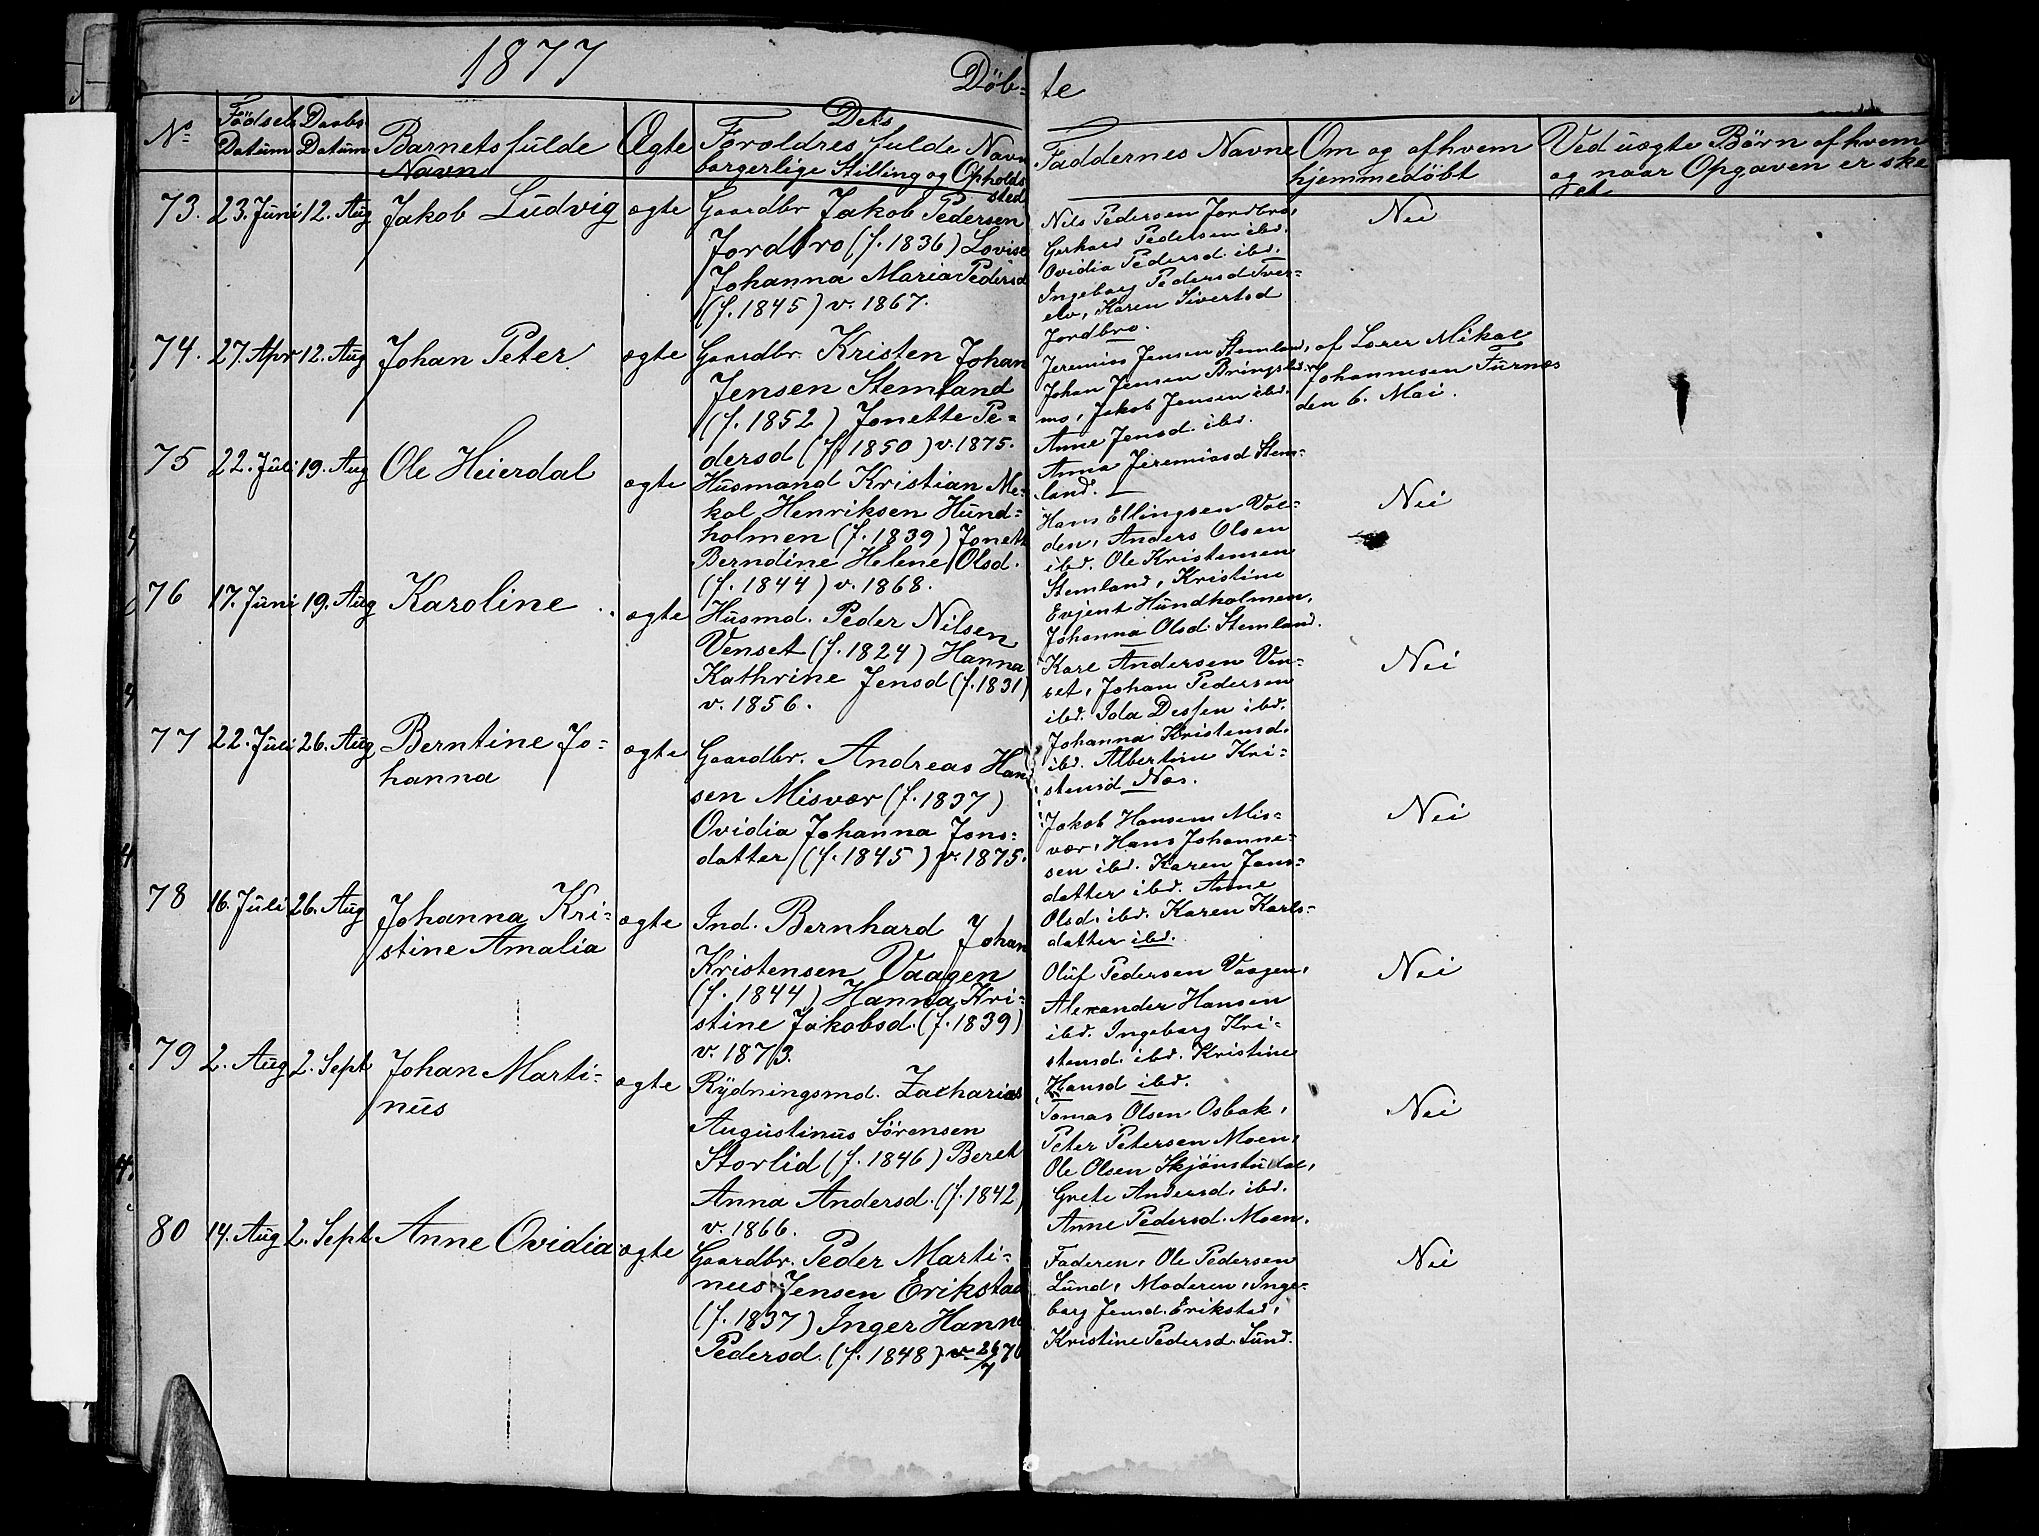 1877
Döb-
te
No
Födsels Datum
Daabs Datum
Barnets fulde Navn
Ægte
Dets Foroldres fulde Navn borgerlige Stilling og Opholdssted
Faddernes Navne
Om og af hvem hjemmedöbt
Ved uægte Börn af hvem og naar Opgaven er skeet
73. 23. Juni 12. Aug Jakob Ludvig ægte
Gaardbr Jakob Pedersen
Jordbro (f. 1836) Lovise
Johanna Maria Pedersd
(f. 1845) v. 1867.
Nils Pedersen Jordbro,
Gerhard Pedersen ibd.
Ovidia Pedersd. ibd.
Ingeborg Pedersd Tver-
elv, Karen Sivertsd
Jordbro.
Nei
74. 27. Apr 12. Aug Johan Peter. ægte
Gaardbr. Kristen Johan
Jensen Stemland
(f. 1852) Jonette Pe-
dersd (f. 1850) v. 1875.
Jeremias Jensen Stemland,
Johan Jensen
mo, Jakob Jensen ibd.
Anne Jensd. ibd.
Anna Jeremiasd Stem-
land.
af Lærer Mikal
Johannesen Furnes
den 6. Mai.
75 22. Juli 19. Aug Ole Heierdal ægte
Husmand Kristian Me-
kal Henriksen Hund-
holmen (f. 1839) Jonette
Berndine Helene Olsd.
(f. 1844) v. 1868.
Hans Ellingsen Val-
den, Anders Olsen
ibd. Ole Kristensen
Stemland, Kristine
Evjent Hundholmen,
Johanna Olsd. Stemland.
Nei
76 17. Juni 19. Aug Karoline ægte
Husmd. Peder Nilsen
Venset (f. 1824) Hanna
Kathrine Jensd (f. 1831)
v. 1856.
Karl Andersen Ven-
set, Johan Pedersen
ibd. Ida Dessen ibd.
Johanna Kristensd.
ibd. Albertine Kri-
stensd Næs.
Nei
77 22. Juli 26. Aug Berntine Jo-
hanna ægte
Gaardbr. Andreas Han
sen Misvær (f. 1837)
Ovidia Johanna Jens-
datter (f. 1845) v. 1875.
Jakob Hansen Mis-
vær, Hans Johanne-
sen ibd. Karen Jans-
datter ibd. Anne
Olsd. ibd. Karen Karls-
datter ibd.
Nei
78 16. Juli 26. Aug Johanna Kri-
stine Amalia ægte
Ind. Bernhard Johan
Kristensen Vaagen
(f. 1844) Hanna Kri-
stine Jakobsd. (f. 1839)
v. 1873.
Oluf Pedersen Vaagen,
Alexander Hansen
ibd. Ingeborg Kri-
stensd. ibd. Kristine
Hansd ibd.
Nei
79 2. Aug 2. Sept Johan Marti-
nus ægte
Rydningsmd. Zacharias
Augustinus Sörensen
Storlid (f. 1846) Beret
Anna Andersd. (f. 1842)
v. 1866.
Tomas Olsen Osbak,
Peter Petersen Moen,
Ole Olsen Skjönstudal,
Grete Andersd. ibd.
Anne Pedersd. Moen.
Nei
80 14. Aug 2. Sept Anne Ovidia ægte
Gaardbr. Peder Marti-
nus Jensen Erikstad
(f. 1837) Inger Hanna
Pedersd. (f. 1848) v. 26/7 70
Faderen, Ole Pedersen
Lund, Moderen, Inge-
borg Jensd. Erikstad,
Kristine Pedersd. Lund.
Nei